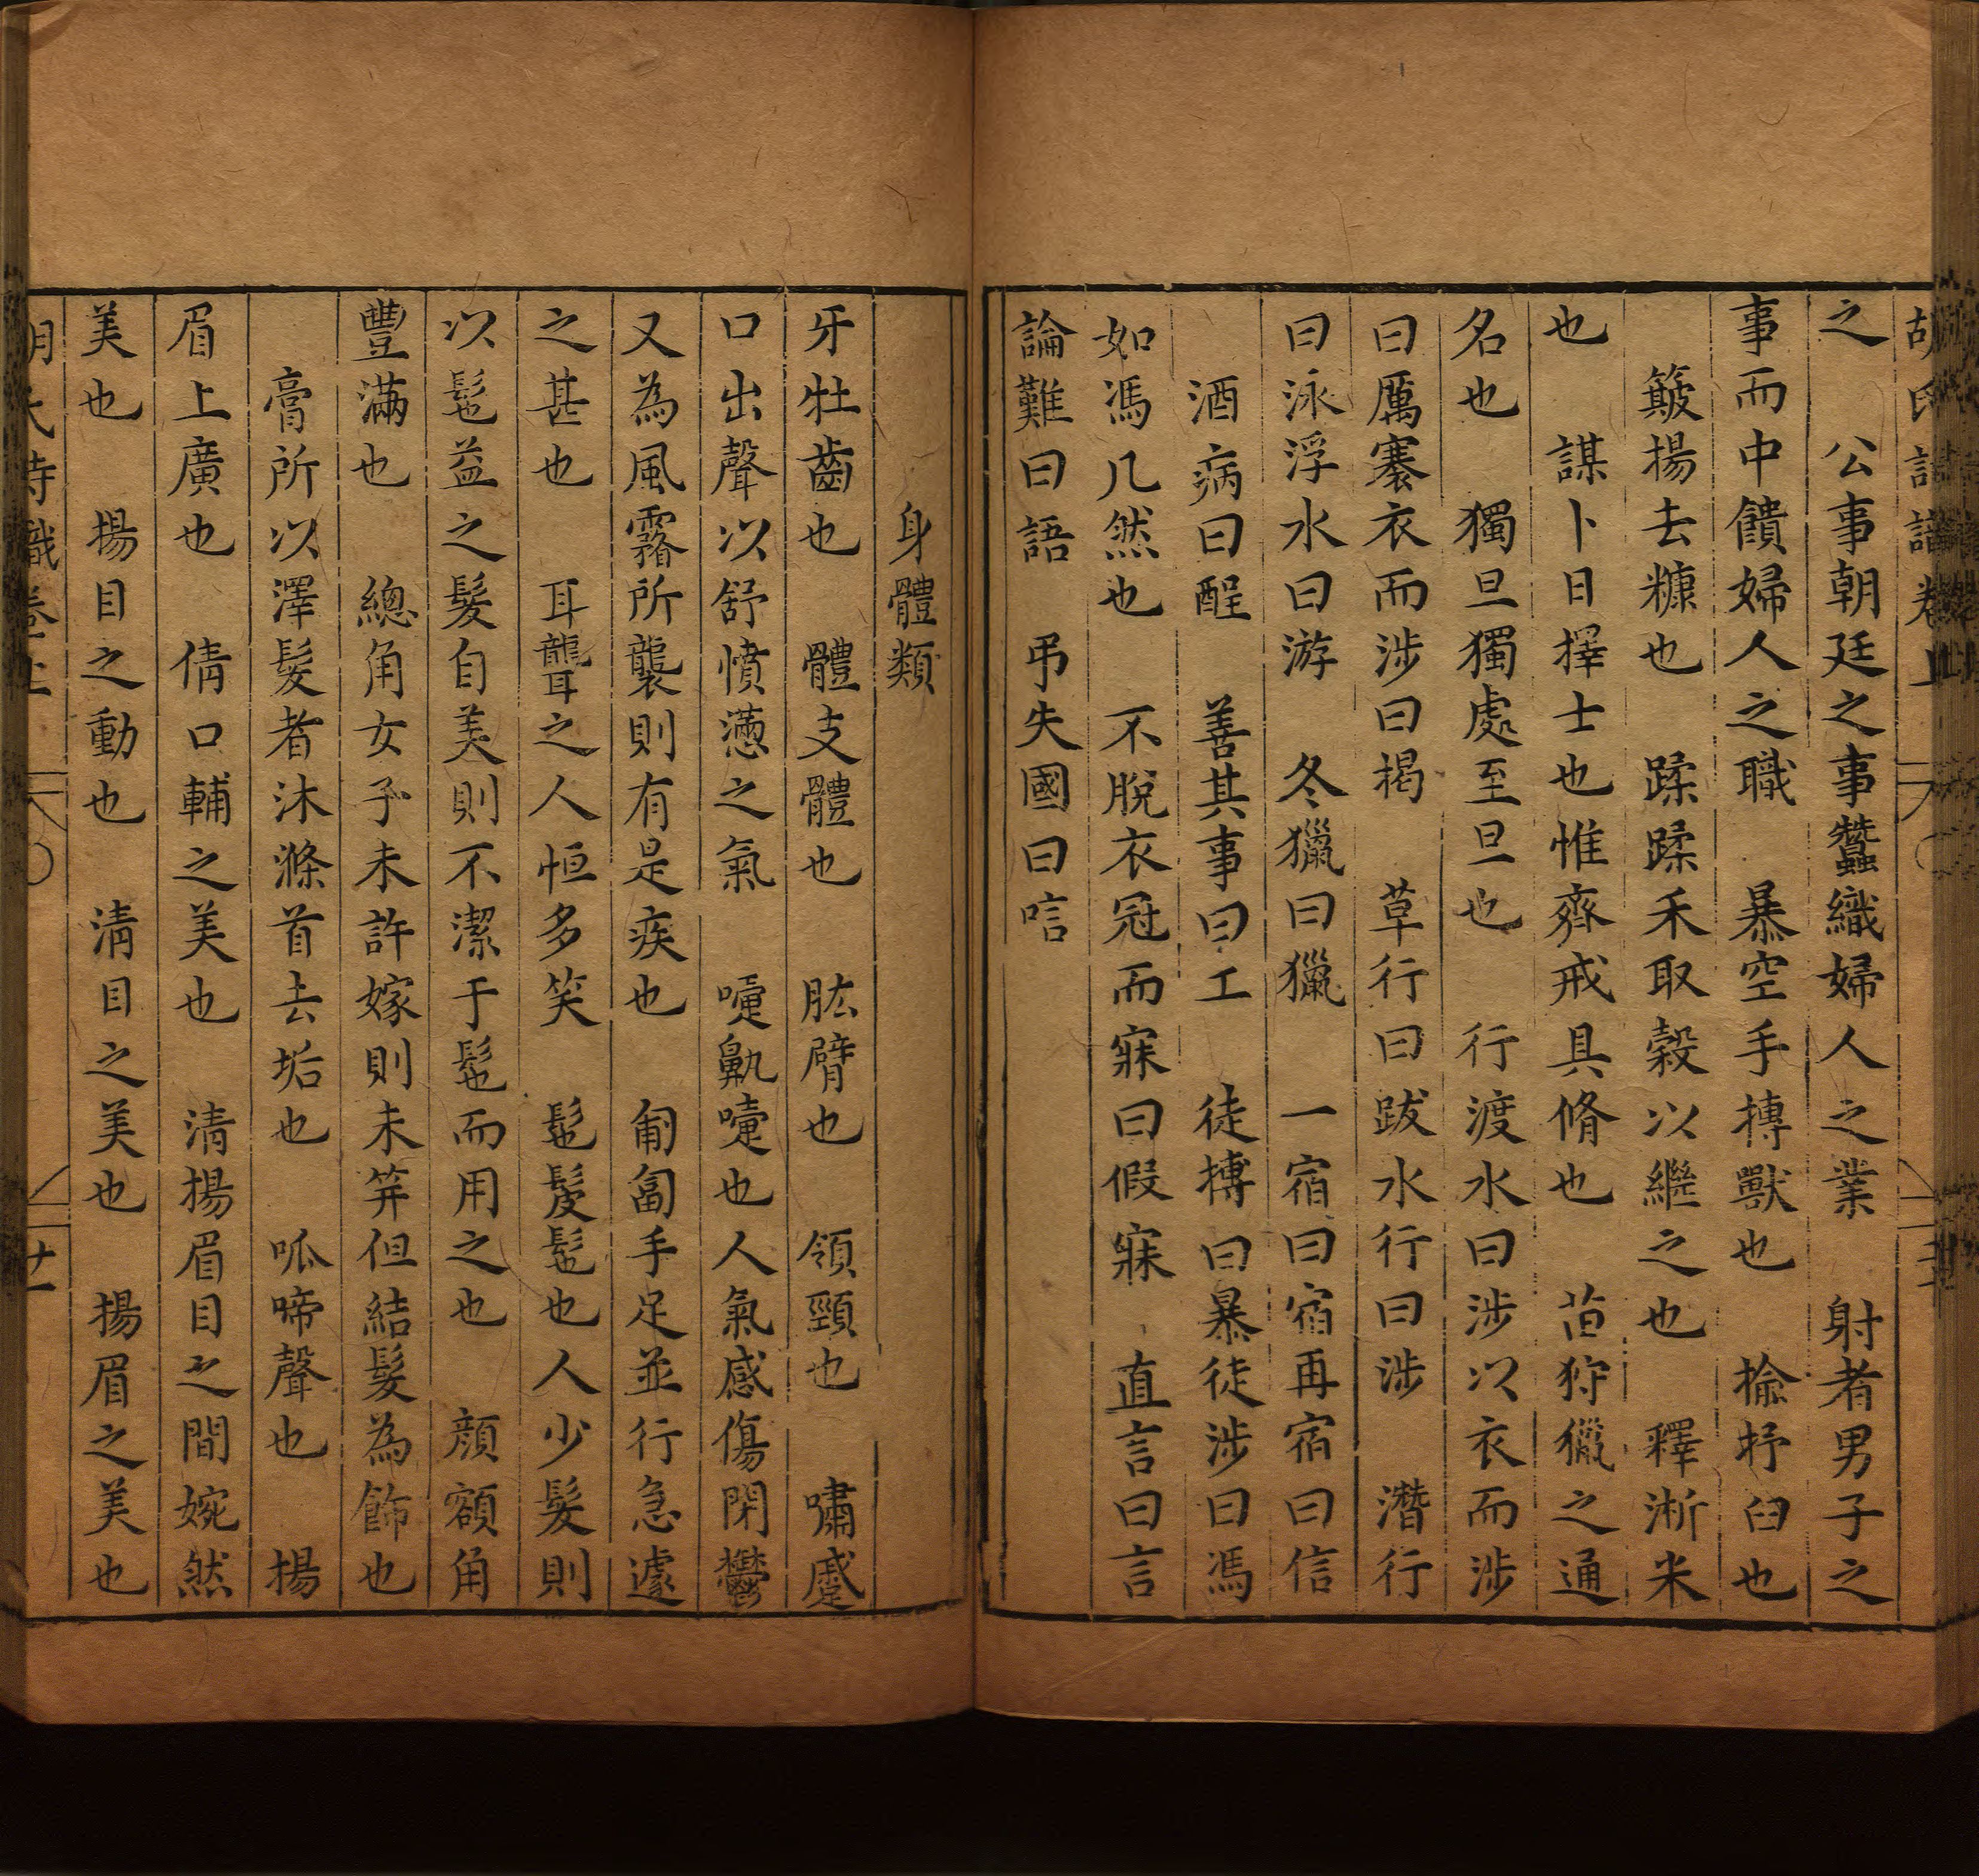 之　公事朝廷之事蠶織婦人之業　射者男子之
事而中饋婦人之職　暴空手搏獸也　揄抒臼也
簸揚去糠也　蹂蹂禾取穀以繼之也　釋淅米
也　謀卜日擇士也惟齊戒具脩也　苗狩獵之通
名也　獨旦獨處至旦也　行渡水曰涉以衣而涉
曰厲褰衣而涉曰揭　草行曰跋水行曰涉　潛行
曰泳浮水曰游　冬獵曰獵　一宿曰宿再宿曰信
酒病曰酲　善其事曰工　徒搏曰暴徒涉曰馮
如馮几然也　不脫衣冠而寐曰假寐　直言曰言
論難曰語　弔失國曰唁
身體類
牙牡齒也　體支體也　肱臂也　領頸也　嘯蹙
口出聲以舒憤懣之氣　嚏鼽嚏也人氣感傷閉鬱
又為風霧所襲則有是疾也　匍匐手足並行急遽
之甚也　耳聾之人恒多笑　髢髲髢也人少髮則
以髢益之髮自美則不潔于髢而用之也　顔額角
豐滿也　總角女子未許嫁則未笄但結髮為飾也
膏所以澤髮者沐滌首去垢也　呱啼聲也　揚
眉上廣也　倩口輔之美也　清揚眉目之間婉然
美也　揚目之動也　清目之美也　揚眉之美也